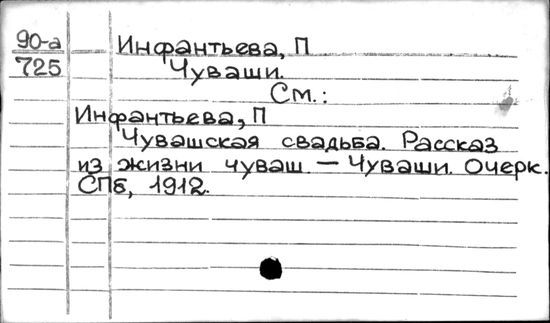 90-а
725
Инфантьева, П
Чуваши.
См.:
Инфантьева, П
Чувашская свадьба. Рассказ
из жизни чуваш. — Чуваши. Очерк.
СПб, 1912.